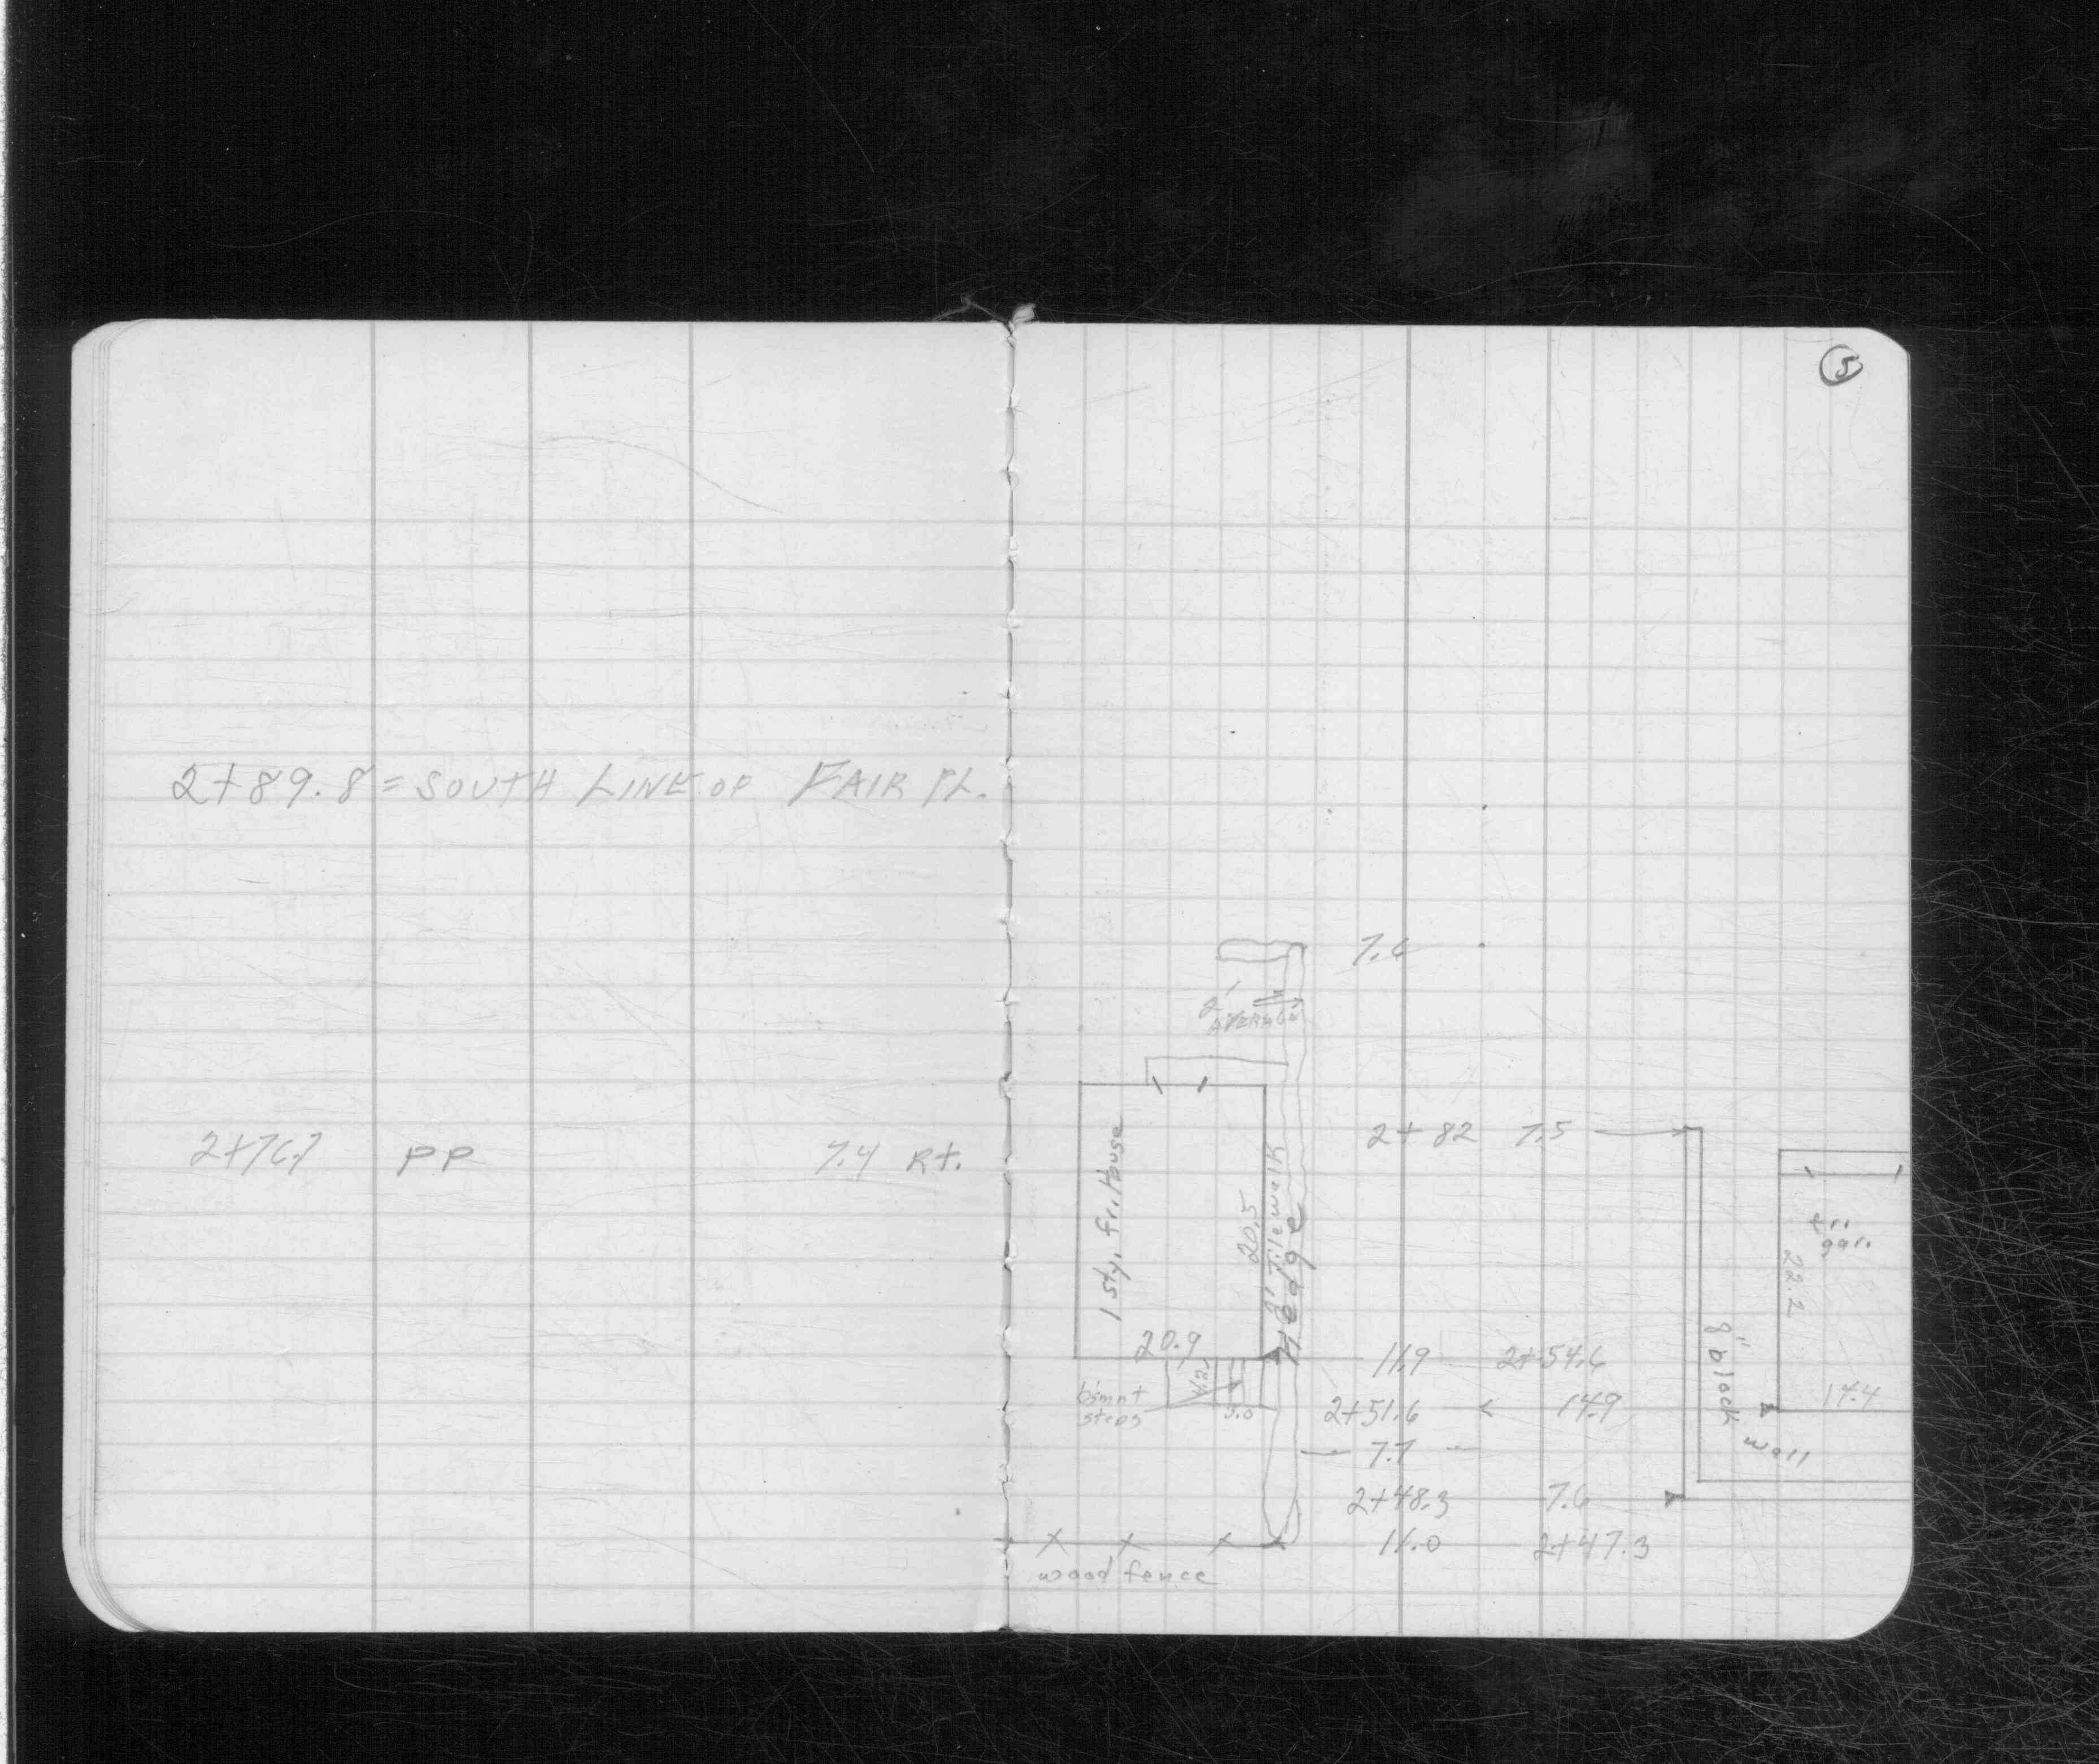 5
2+89.8 = SOUTH LINE OF FAIR PL.
2+76.7 PP 7.4 Rt.
7.6
2'
AVERAGE
2+82 7.5
1 sty. fr. House
20.5
2' Tile walk
Hedge
fr.
gar.
22.2
20.9
11.9 2+54.6
8" block
wall
17.4
4.2
bsmnt
steps
3.0
2+51.6 < 14.9
7.7
2+48.3 7.6
11.0 2+47.3
wood fence